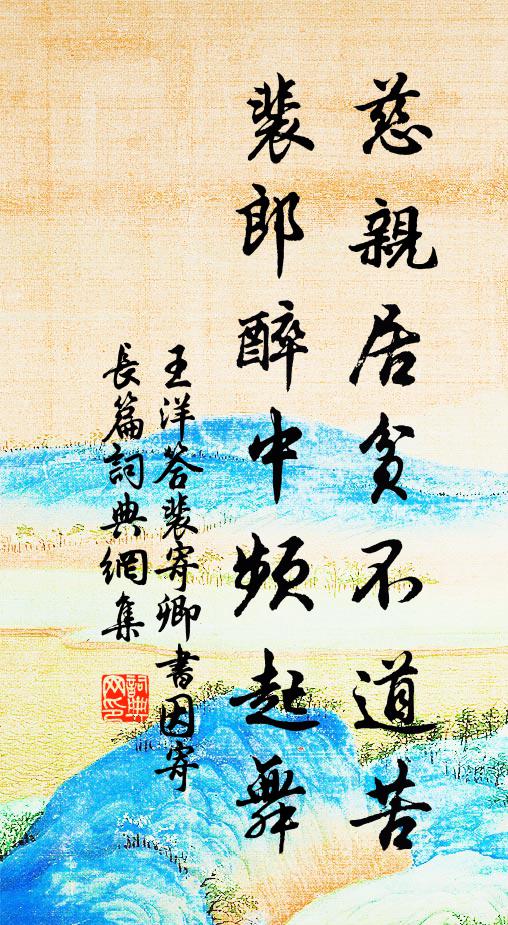 慈親居貧不道苦
裴郎醉中頻起舞
王洋答裴寄卿書因寄
長篇詞典網集
詞典
網印